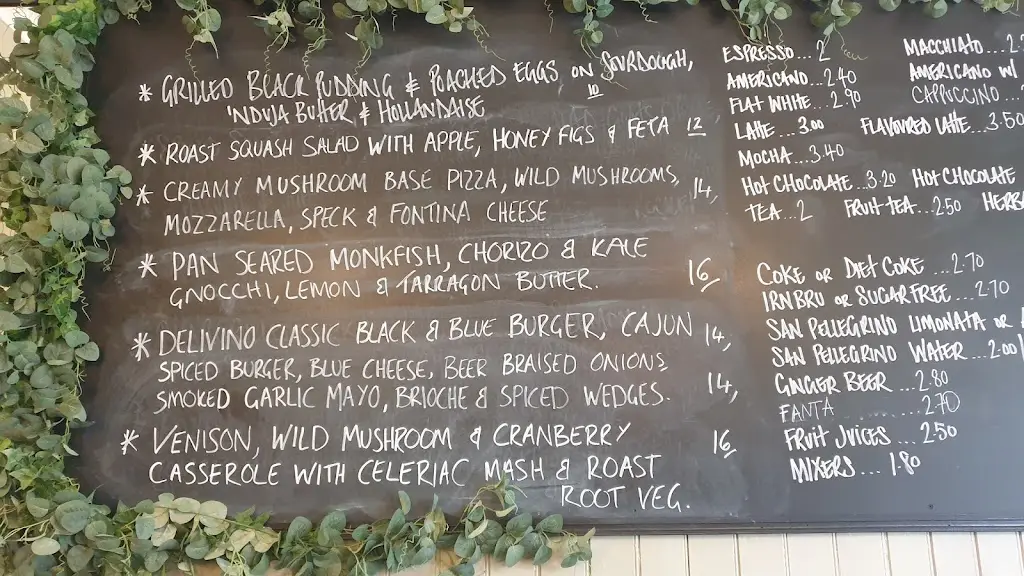 * GRILLED BLACK PUDDING & POACHED EGGS, ON SOURDOUGH,
'NDUJA BUTTER & HOLLANDAISE 10
* ROAST SQUASH SALAD WITH APPLE, HONEY FIGS & FETA 12
* CREAMY MUSHROOM BASE PIZZA, WILD MUSHROOMS, 14,
MOZZARELLA, SPECK & FONTINA CHEESE
* PAN SEARED MONKFISH, CHORIZO & KALE 16
GNOCCHI, LEMON & TARRAGON BUTTER.
* DELIVINO CLASSIC BLACK & BLUE BURGER, CAJUN 14,
SPICED BURGER, BLUE CHEESE, BEER BRAISED ONIONS,
SMOKED GARLIC MAYO, BRIOCHE & SPICED WEDGES. 14,
* VENISON, WILD MUSHROOM & CRANBERRY 16
CASSEROLE WITH CELERIAC MASH & ROAST
ROOT VEG.
ESPRESSO...2 MACCHIATO...2
AMERICANO...2.40 AMERICANO W/
FLAT WHITE...2.90 CAPPUCCINO...
LATTE...3.00 FLAVOURED LATTE...3.50
MOCHA...3.40
HOT CHOCOLATE...3.20 HOT CHOCOLATE
TEA...2 FRUIT TEA...2.50 HERBA
COKE OR DIET COKE ...2.70
IRN BRU OR SUGAR FREE...2.70
SAN PELLEGRINO LIMONATA OR
SAN PELLEGRINO WATER...2.00/
GINGER BEER ...2.80
FANTA ...2.70
FRUIT JUICES ...2.50
MIXERS ... 1.80